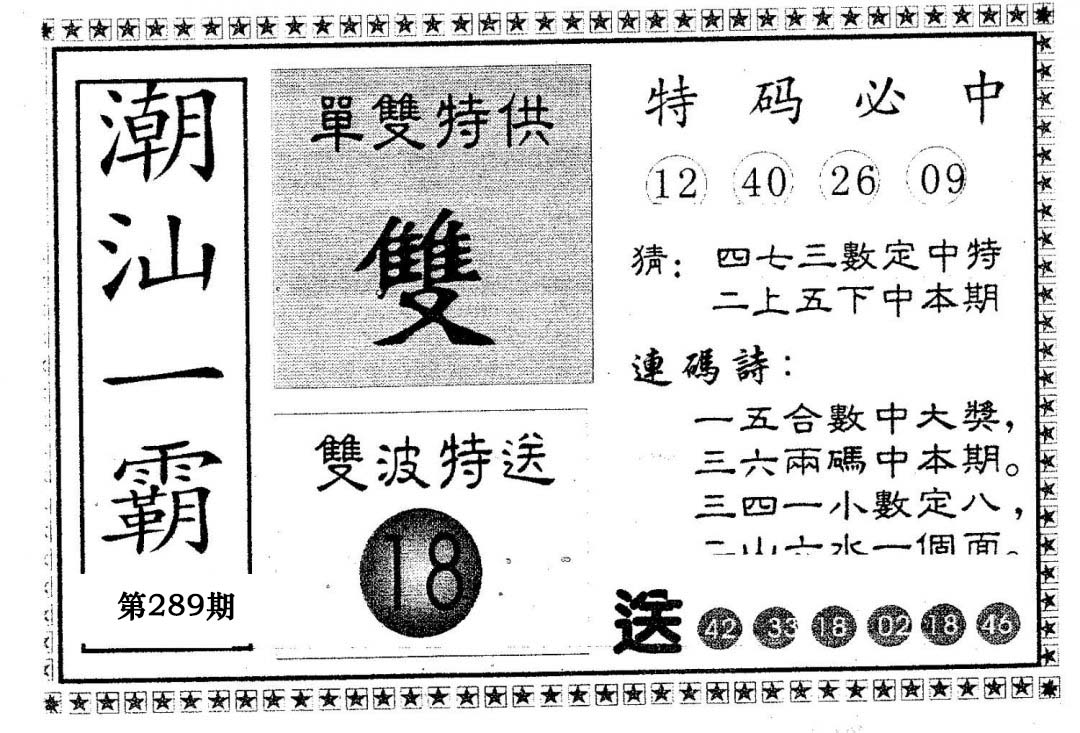 潮汕一霸
第289期
單雙特供
雙
雙波特送
18
特码必中
12 40 26 09
猜：四七三數定中特
二上五下中本期
連碼詩：
一五合數中大獎，
三六兩碼中本期。
三四一小數定八，
二山六水一個面。
送 42 33 18 02 18 46